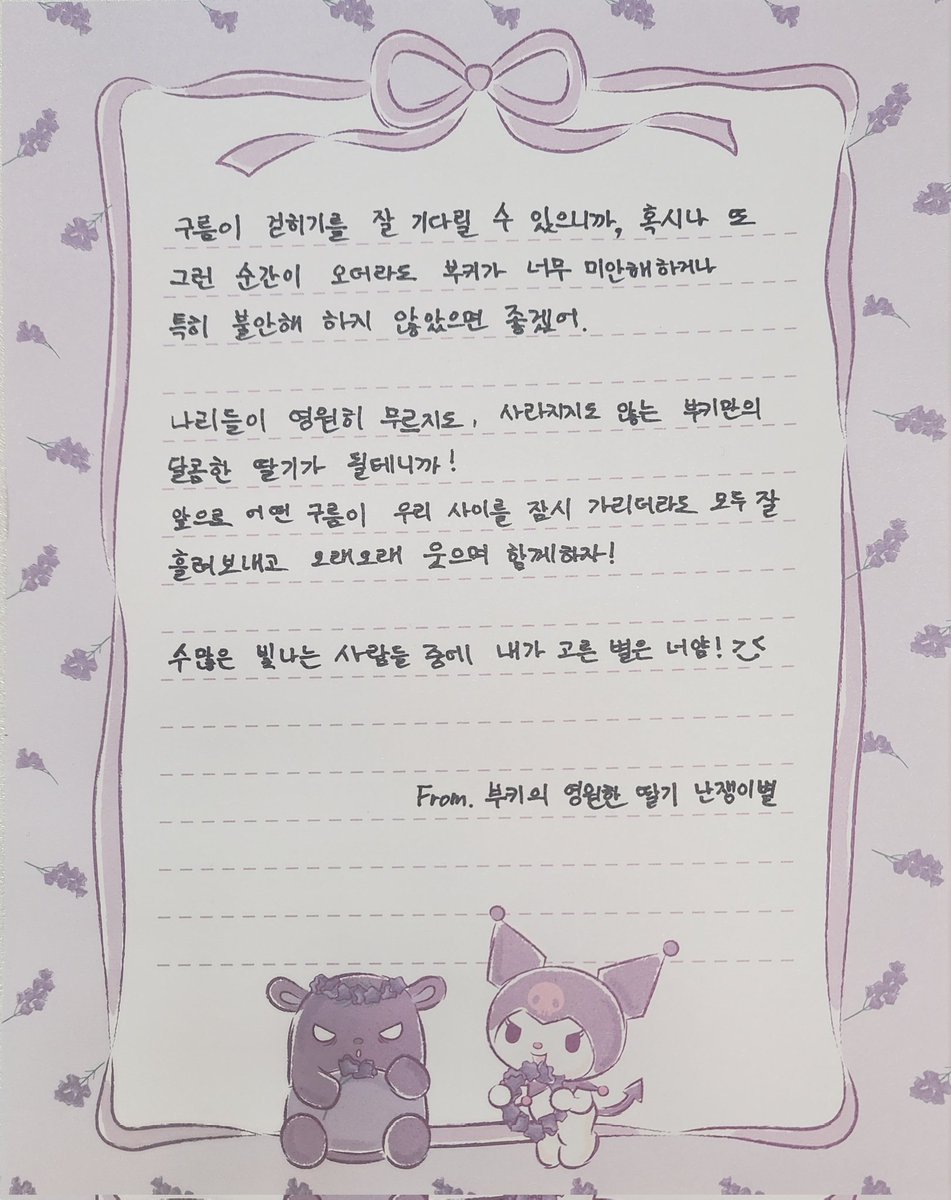 구름이 걷히기를 잘 기다릴 수 있으니까, 혹시나 또
그런 순간이 오더라도 부키가 너무 미안해하거나
특히 불안해 하지 않았으면 좋겠어.
나리들이 영원히 무르지도, 사라지지도 않는 부키만의
달콤한 딸기가 될테니까!
앞으로 어떤 구름이 우리 사이를 잠시 가리더라도 모두 잘
흘려보내고 오래오래 웃으며 함께하자!
수많은 빛나는 사람들 중에 내가 고른 별은 너얌!
From. 부키의 영원한 딸기 난쟁이별